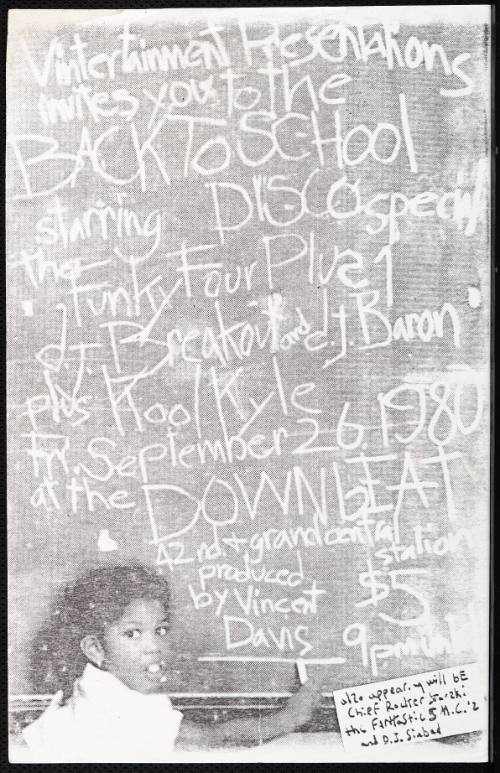 Vintertainment Presentations
invites you to the
BACK To SCHool
DiSCO special
starring
the Funky Four Plus 1
d.j. Breakout and d.j. Baron
plus Kool Kyle
Fri. September 26, 1980
at the DOWNbEAT
42nd + grand central station
produced
by Vincent
Davis
$5
9pm until
also appearing will bE
Chief Rocker
the FANTAStic 5 M.C.'z
and D.J.